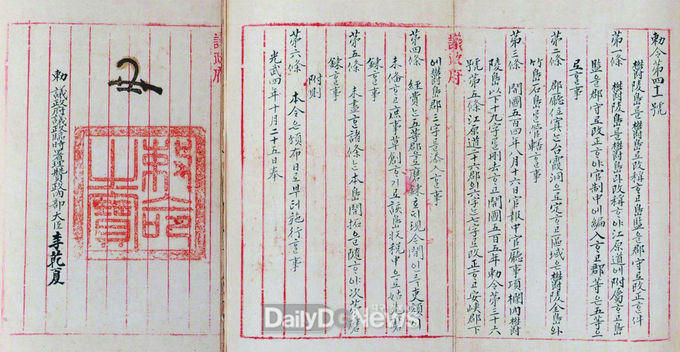 勅令第四十一號
鬱陵島를鬱島로改稱ᄒᆞ고島監을郡守로改正ᄒᆞᆫ件
第一條 鬱陵島를鬱島라改稱ᄒᆞ야江原道에附屬ᄒᆞ고島
監을郡守로改正ᄒᆞ야官制中에編入ᄒᆞ고郡等은五等으
로ᄒᆞᆯ事
第二條 郡廳位寘는台霞洞으로定ᄒᆞ고區域은鬱陵全島와
竹島石島를管轄ᄒᆞᆯ事
第三條 開國五百四年八月十六日官報中官廳事項欄內鬱
陵島以下十九字를刪去ᄒᆞ고開國五百五年勅令第三十六
號第五條江原道二十六郡의六字는七字로改正ᄒᆞ고安峽郡下
議政府
에鬱島郡三字를添入ᄒᆞᆯ事
第四條 經費는五等郡으로磨鍊호되現今間인즉吏額이
未備ᄒᆞ고庶事草創ᄒᆞ기로該島收稅中으로姑先磨
鍊ᄒᆞᆯ事
第五條 未盡ᄒᆞᆫ諸條는本島開拓을隨ᄒᆞ야次第磨
鍊ᄒᆞᆯ事
附則
第六條 本令은頒布日로부터施行ᄒᆞᆯ事
光武四年十月二十五日奉
議政府
勅命之寶
勅 議政府議政臨時署理贊政內部大臣 李乾夏
DailyDgNews